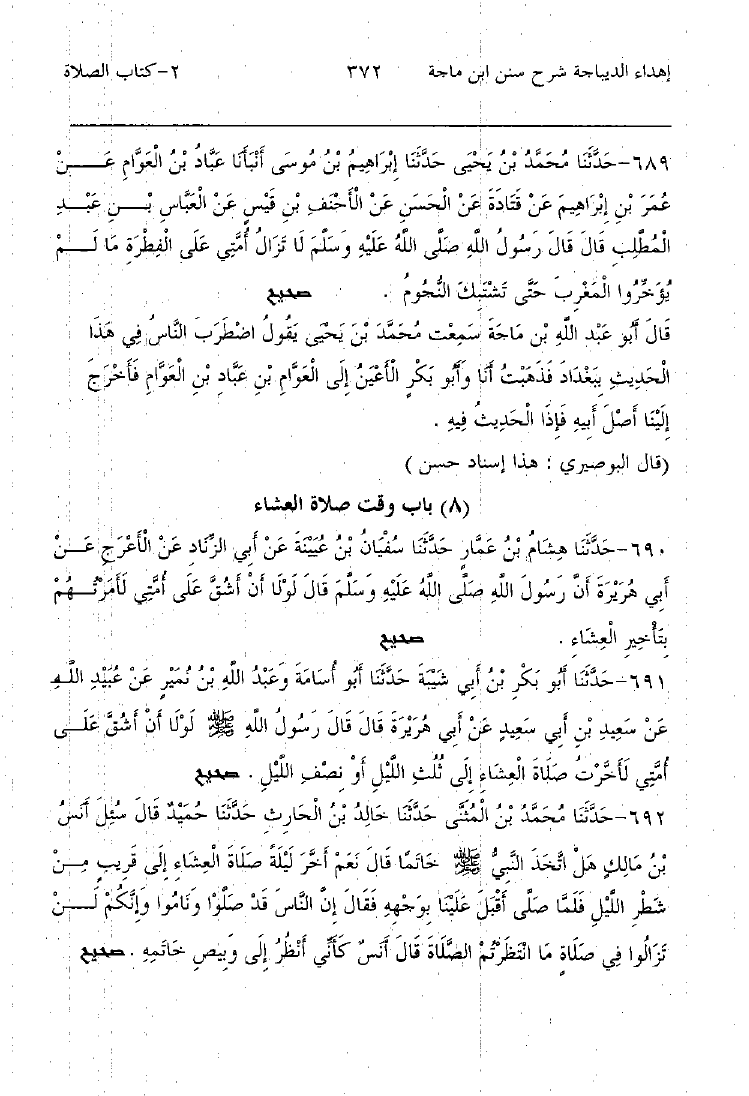 إهداء الديباجة شرح سنن ابن ماجة ٣٧٢ ٢-كتاب الصلاة
٦٨٩-حَدَّثَنَا مُحَمَّدُ بْنُ يَحْيَى حَدَّثَنَا إِبْرَاهِيمُ بْنُ مُوسَى أَنْبَأَنَا عَبَّادُ بْنُ الْعَوَّامِ عَنْ
عُمَرَ بْنِ إِبْرَاهِيمَ عَنْ قَتَادَةَ عَنْ الْحَسَنِ عَنْ الْأَحْنَفِ بْنِ قَيْسٍ عَنْ الْعَبَّاسِ بْنِ عَبْدِ
الْمُطَّلِبِ قَالَ قَالَ رَسُولُ اللهِ صَلَّى اللهُ عَلَيْهِ وَسَلَّمَ لَا تَزَالُ أُمَّتِي عَلَى الْفِطْرَةِ مَا لَمْ
يُؤَخِّرُوا الْمَغْرِبَ حَتَّى تَشْتَبِكَ النُّجُومُ . صحيح
قَالَ أَبُو عَبْد اللهِ بْن مَاجَةَ سَمِعْت مُحَمَّدَ بْنَ يَحْيَى يَقُولُ اضْطَرَبَ النَّاسُ فِي هَذَا
الْحَدِيثِ بِبَغْدَادَ فَذَهَبْتُ أَنَا وَأَبُو بَكْرٍ الْأَعْيَنُ إِلَى الْعَوَّامِ بْنِ عَبَّادِ بْنِ الْعَوَّامِ فَأَخْرَجَ
إِلَيْنَا أَصْلَ أَبِيهِ فَإِذَا الْحَدِيثُ فِيهِ .
(قال البوصيري : هذا إسناد حسن )
(٨) باب وقت صلاة العشاء
٦٩٠-حَدَّثَنَا هِشَامُ بْنُ عَمَّارٍ حَدَّثَنَا سُفْيَانُ بْنُ عُيَيْنَةَ عَنْ أَبِي الزِّنَادِ عَنْ الْأَعْرَجِ عَنْ
أَبِي هُرَيْرَةَ أَنَّ رَسُولَ اللهِ صَلَّى اللهُ عَلَيْهِ وَسَلَّمَ قَالَ لَوْلَا أَنْ أَشُقَّ عَلَى أُمَّتِي لَأَمَرْتُهُمْ
بِتَأْخِيرِ الْعِشَاءِ . صحيح
٦٩١-حَدَّثَنَا أَبُو بَكْرِ بْنُ أَبِي شَيْبَةَ حَدَّثَنَا أَبُو أُسَامَةَ وَعَبْدُ اللهِ بْنُ نُمَيْرٍ عَنْ عُبَيْدِ اللهِ
عَنْ سَعِيدِ بْنِ أَبِي سَعِيدٍ عَنْ أَبِي هُرَيْرَةَ قَالَ قَالَ رَسُولُ اللهِ ﷺ لَوْلَا أَنْ أَشُقَّ عَلَى
أُمَّتِي لَأَخَّرْتُ صَلَاةَ الْعِشَاءِ إِلَى ثُلُثِ اللَّيْلِ أَوْ نِصْفِ اللَّيْلِ . صحيح
٦٩٢-حَدَّثَنَا مُحَمَّدُ بْنُ الْمُثَنَّى حَدَّثَنَا خَالِدُ بْنُ الْحَارِثِ حَدَّثَنَا حُمَيْدٌ قَالَ سُئِلَ أَنَسُ
بْنُ مَالِكٍ هَلْ اتَّخَذَ النَّبِيُّ ﷺ خَاتَمًا قَالَ نَعَمْ أَخَّرَ لَيْلَةً صَلَاةَ الْعِشَاءِ إِلَى قَرِيبٍ مِنْ
شَطْرِ اللَّيْلِ فَلَمَّا صَلَّى أَقْبَلَ عَلَيْنَا بِوَجْهِهِ فَقَالَ إِنَّ النَّاسَ قَدْ صَلَّوْا وَنَامُوا وَإِنَّكُمْ لَنْ
تَزَالُوا فِي صَلَاةٍ مَا انْتَظَرْتُمْ الصَّلَاةَ قَالَ أَنَسٌ كَأَنِّي أَنْظُرُ إِلَى وَبِيصِ خَاتَمِهِ . صحيح